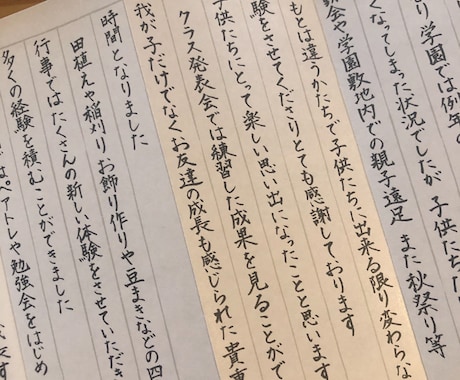 り 学園では例年の
くなってしまった状況でしたが 子供たち
会や学園敷地内での親子遠足 また秋祭り等
もとは違うかたちで子供たちに出来る限り変わらな
験をさせてくださりとても感謝しております
子供たちにとって楽しい思い出になったことと思います
クラス発表会では練習した成果を見ることがで
我が子だけでなくお友達の成長も感じられた貴重
時間となりました
田植えや稲刈り お飾り作りや豆まきなどの四
行事ではたくさんの新しい体験をさせていただき
多くの経験を積むことができました
はペアトレや勉強会をはじめ